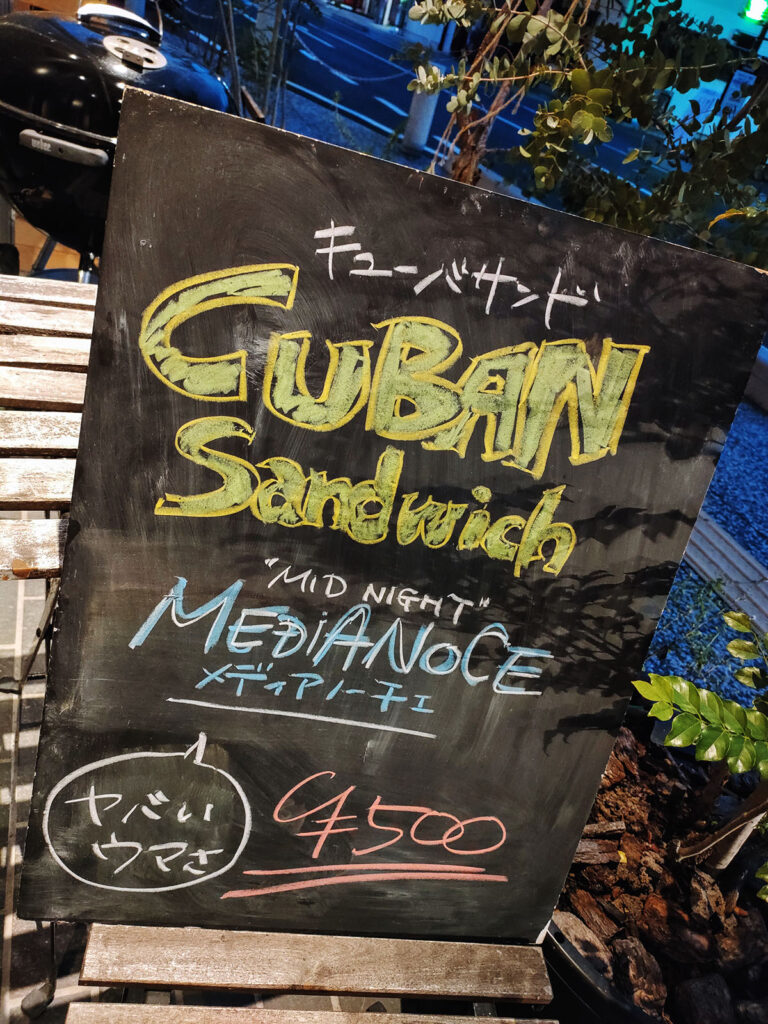 weber
キューバサンド
CUBAN
Sandwich
"MID NIGHT"
MEDiANOCE
メディアノーチェ
ヤバい
ウマさ
¥500